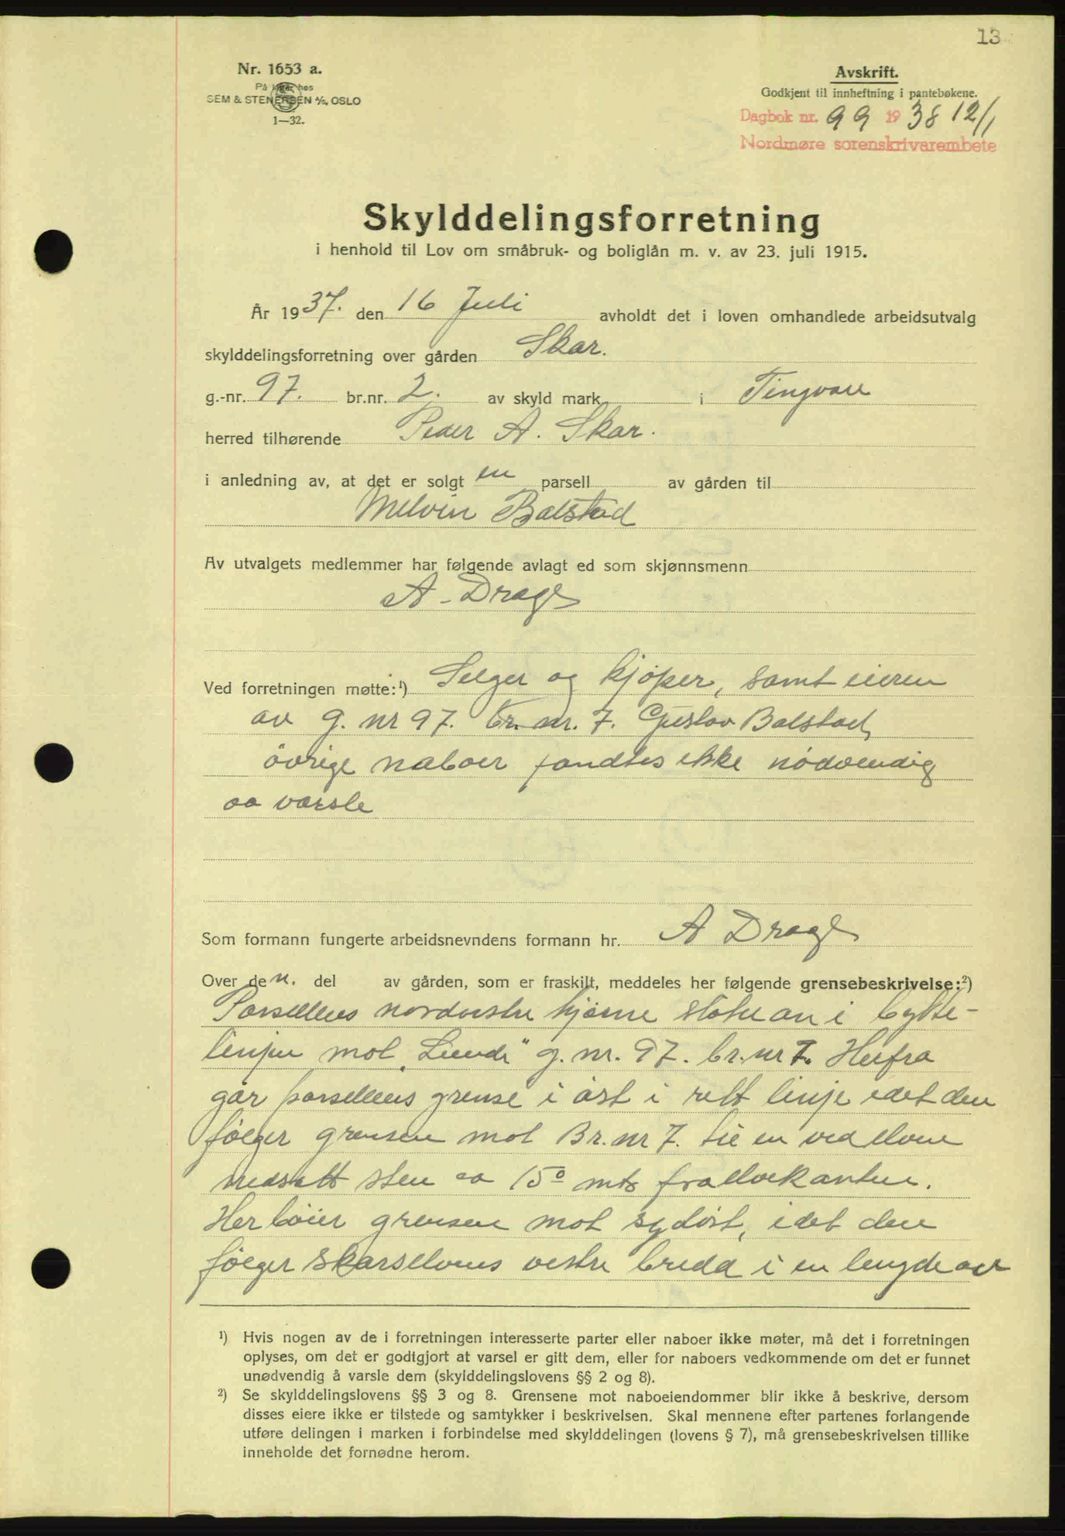 13
Nr. 1653 a.
På lager hos
SEM & STENERSEN A/S, OSLO
1—32.
Avskrift.
Godkjent til innheftning i pantebøkene.
Dagbok nr. 99 1938 12/1
Nordmøre sorenskrivarembete
Skylddelingsforretning
i henhold til Lov om småbruk- og boliglån m. v. av 23. juli 1915.
År 1937. den 16 Juli avholdt det i loven omhandlede arbeidsutvalg
skylddelingsforretning over gården Skar.
g.-nr. 97. br.nr. 2. av skyld mark i Tingvoll
herred tilhørende Peder A. Skar.
i anledning av, at det er solgt en parsell av gården til
Melvin Balstad
Av utvalgets medlemmer har følgende avlagt ed som skjønnsmenn
A. Drage
Ved forretningen møtte:¹) Selger og kjøper, samt eieren
av g. nr 97. br. nr. 7. Gustav Balstad,
øvrige naboer fandtes ikke nødvendig
aa varsle
Som formann fungerte arbeidsnevndens formann hr. A Drage
Over den. del av gården, som er fraskilt, meddeles her følgende grensebeskrivelse:²)
Parsellens nordvestre hjørne støter an i bytte-
linjen mot „Lunde" g. nr. 97. br. nr 7. Herfra
går parsellens grense i øst i rett linje idet den
følger grensen mot Br. nr 7. til en ved elven
nedsatt sten ca 15⁰ mtr fra elvekanten.
Her bøier grensen mot sydøst, idet den
følger Skarselvens vestre bredd i en lengde av
¹) Hvis nogen av de i forretningen interesserte parter eller naboer ikke møter, må det i forretningen
oplyses, om det er godtgjort at varsel er gitt dem, eller for naboers vedkommende om det er funnet
unødvendig å varsle dem (skylddelingslovens §§ 2 og 8).
²) Se skylddelingslovens §§ 3 og 8. Grensene mot naboeiendommer blir ikke å beskrive, dersom
disses eiere ikke er tilstede og samtykker i beskrivelsen. Skal mennene efter partenes forlangende
utføre delingen i marken i forbindelse med skylddelingen (lovens § 7), må grensebeskrivelsen tillike
inneholde det fornødne herom.